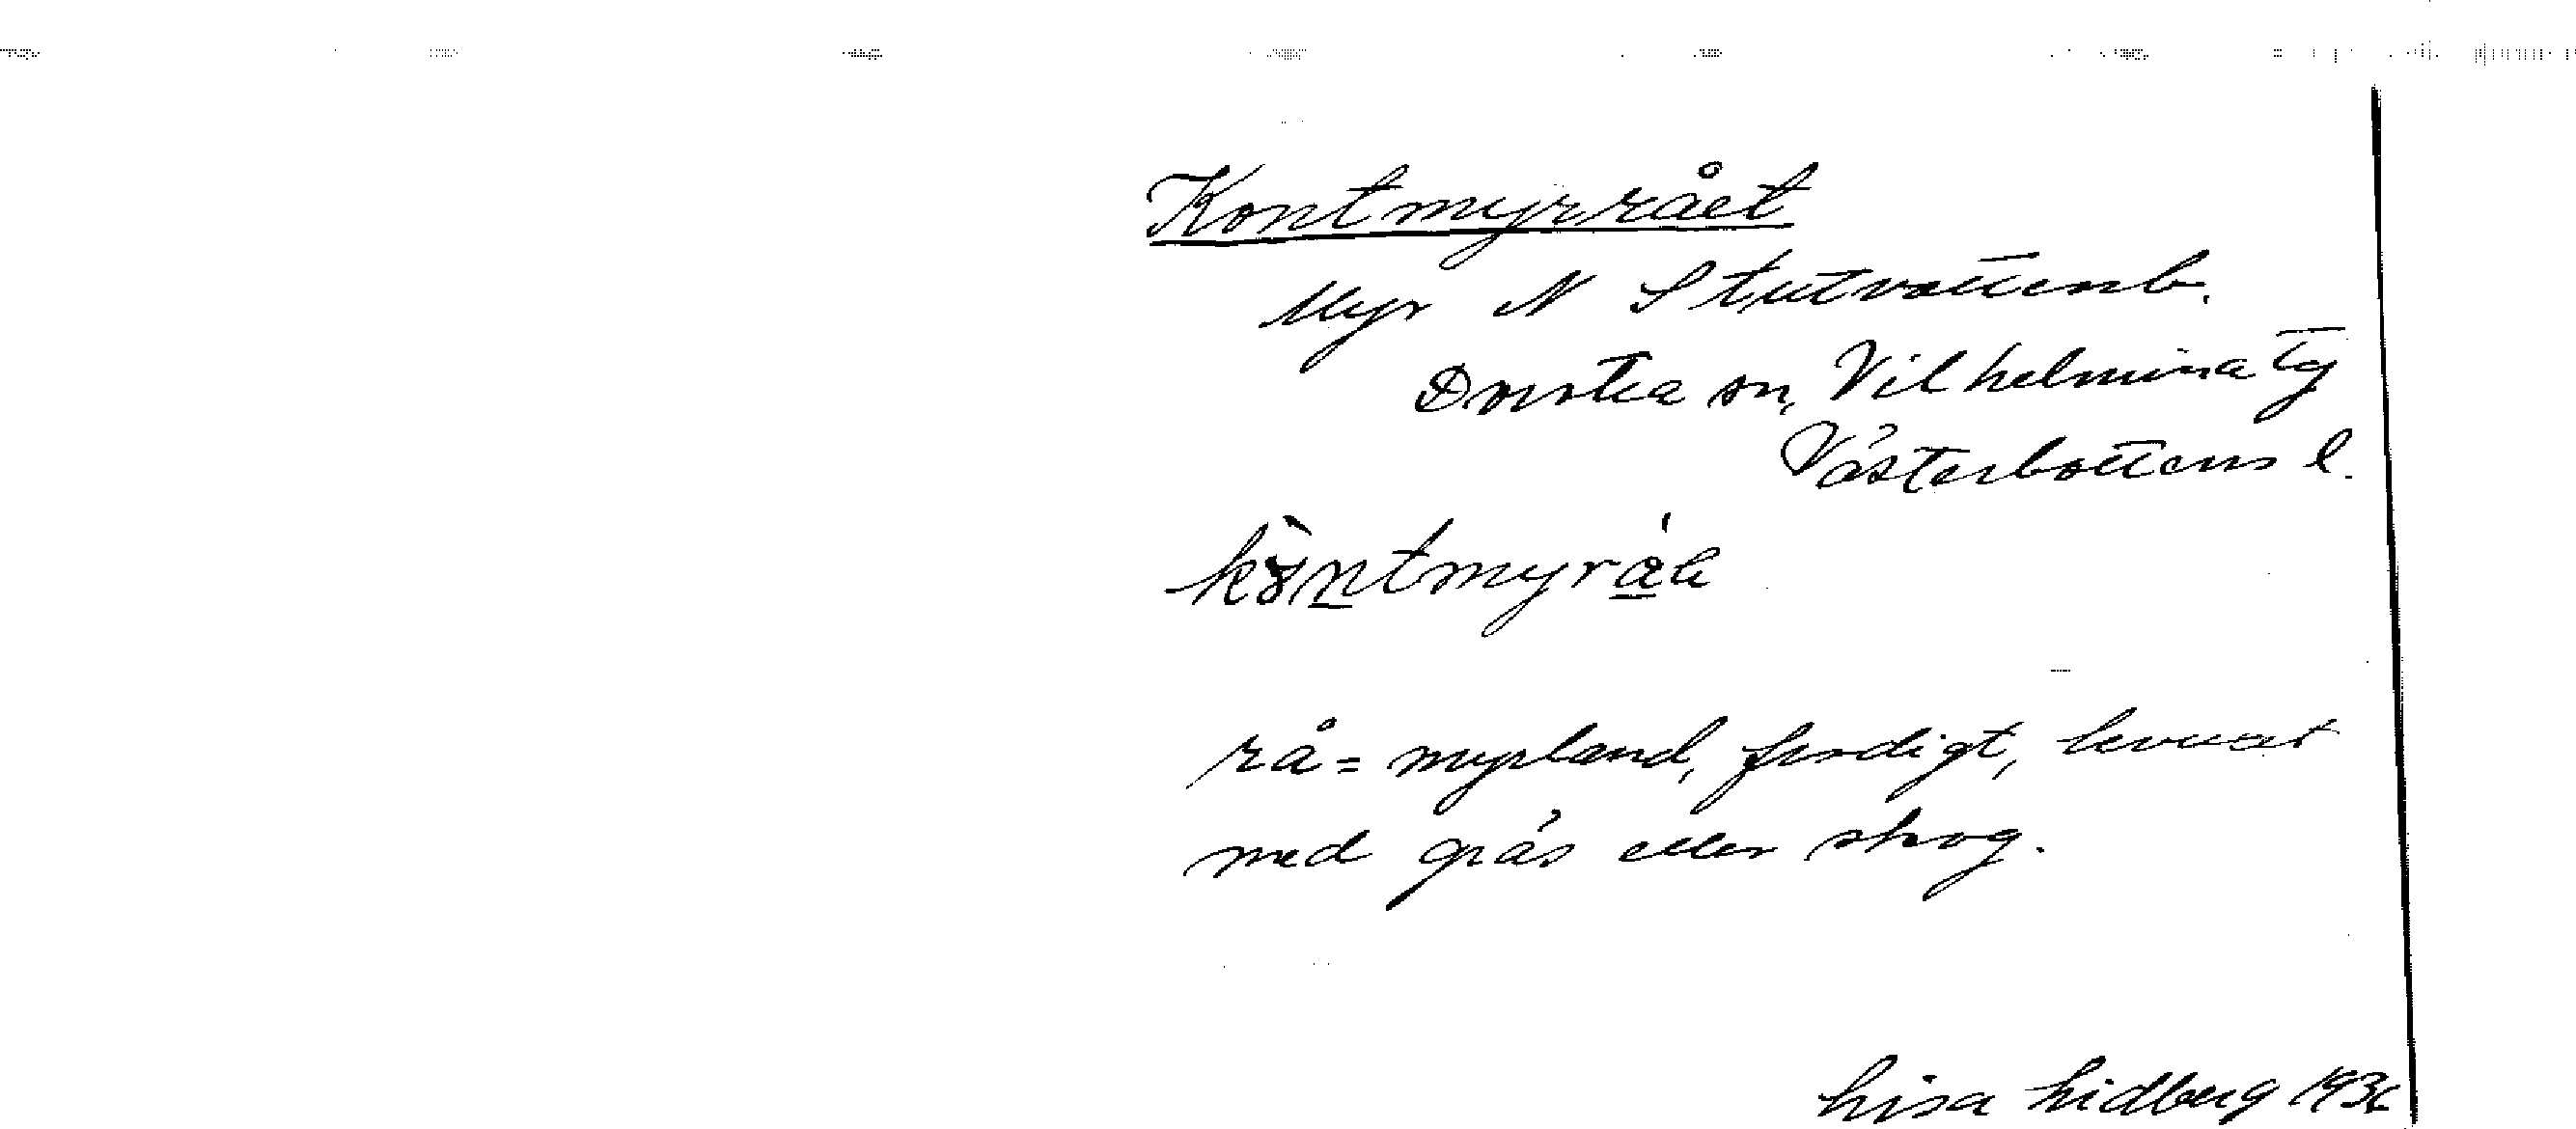 Kontmyrrået
Myr N Stutvattenb.
Dorotea sn, Vilhelmina tg
Västerbottens l.
rå = myrland, frodigt, bevuxet
med gräs eller skog.
Lisa Lidberg 1936